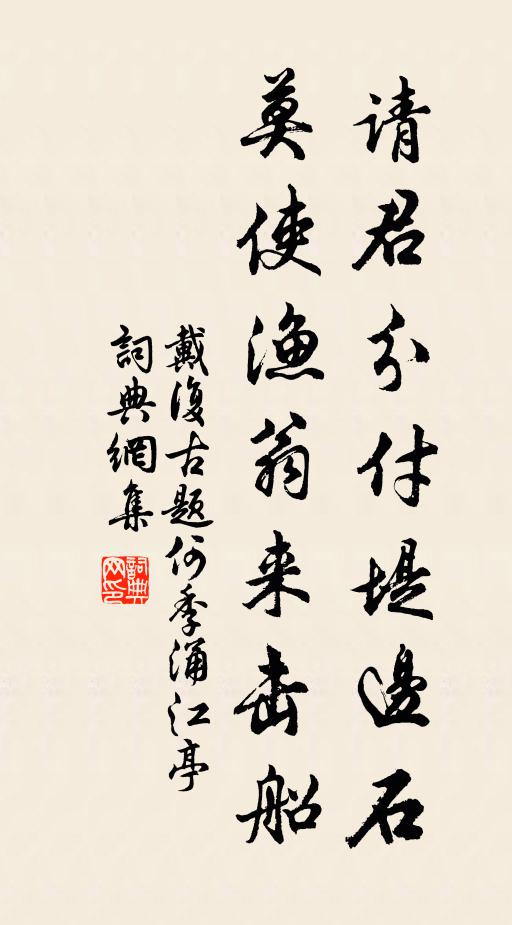 请君分付堤邊石
莫使渔翁来击船
戴復古题何季涌江亭
詞典網集
詞典网印